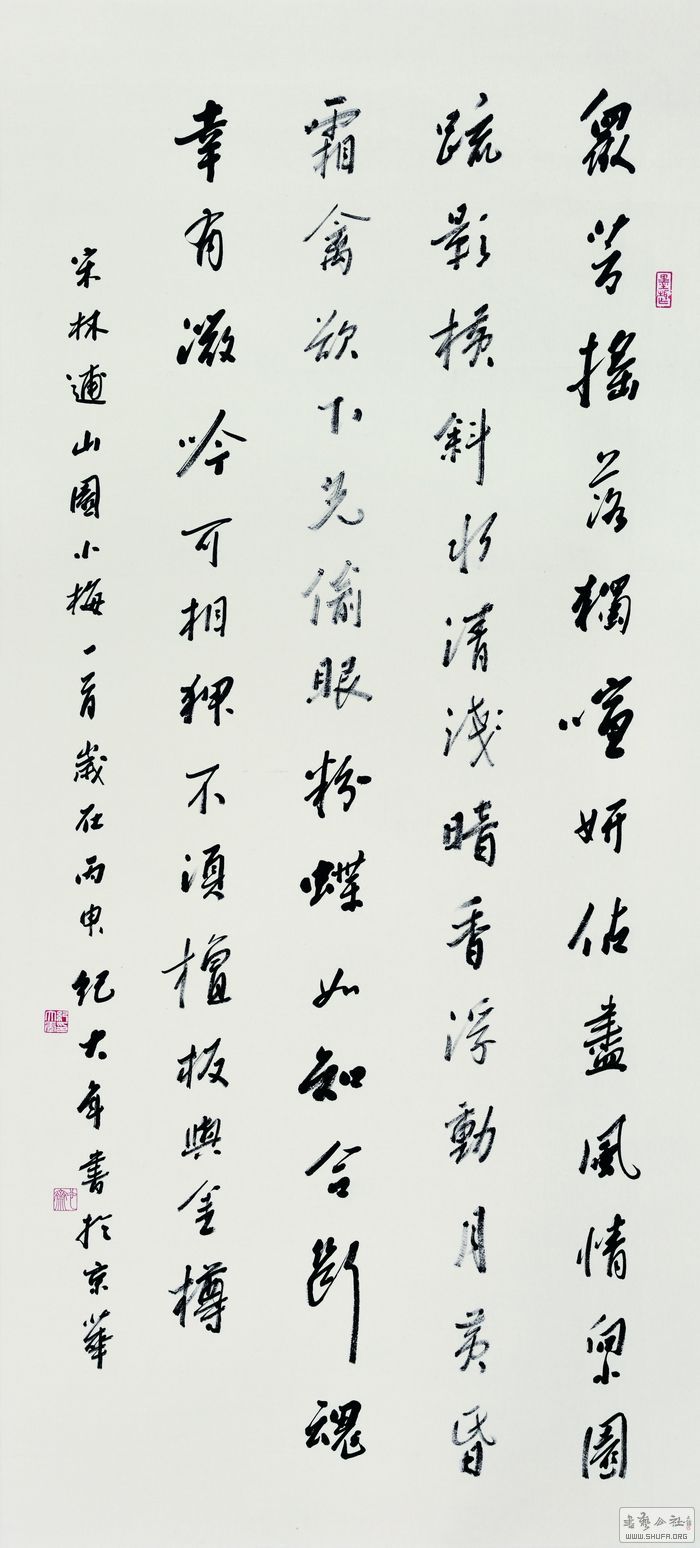 眾芳搖落獨喧妍佔盡風情向小園
疏影橫斜水清淺暗香浮動月黃昏
霜禽欲下先偷眼粉蝶如知合斷魂
幸有微吟可相狎不須檀板與金樽
宋林逋山園小梅一首歲在丙申紀大年書於京華
書藝公社
WWW.SHUFA.ORG